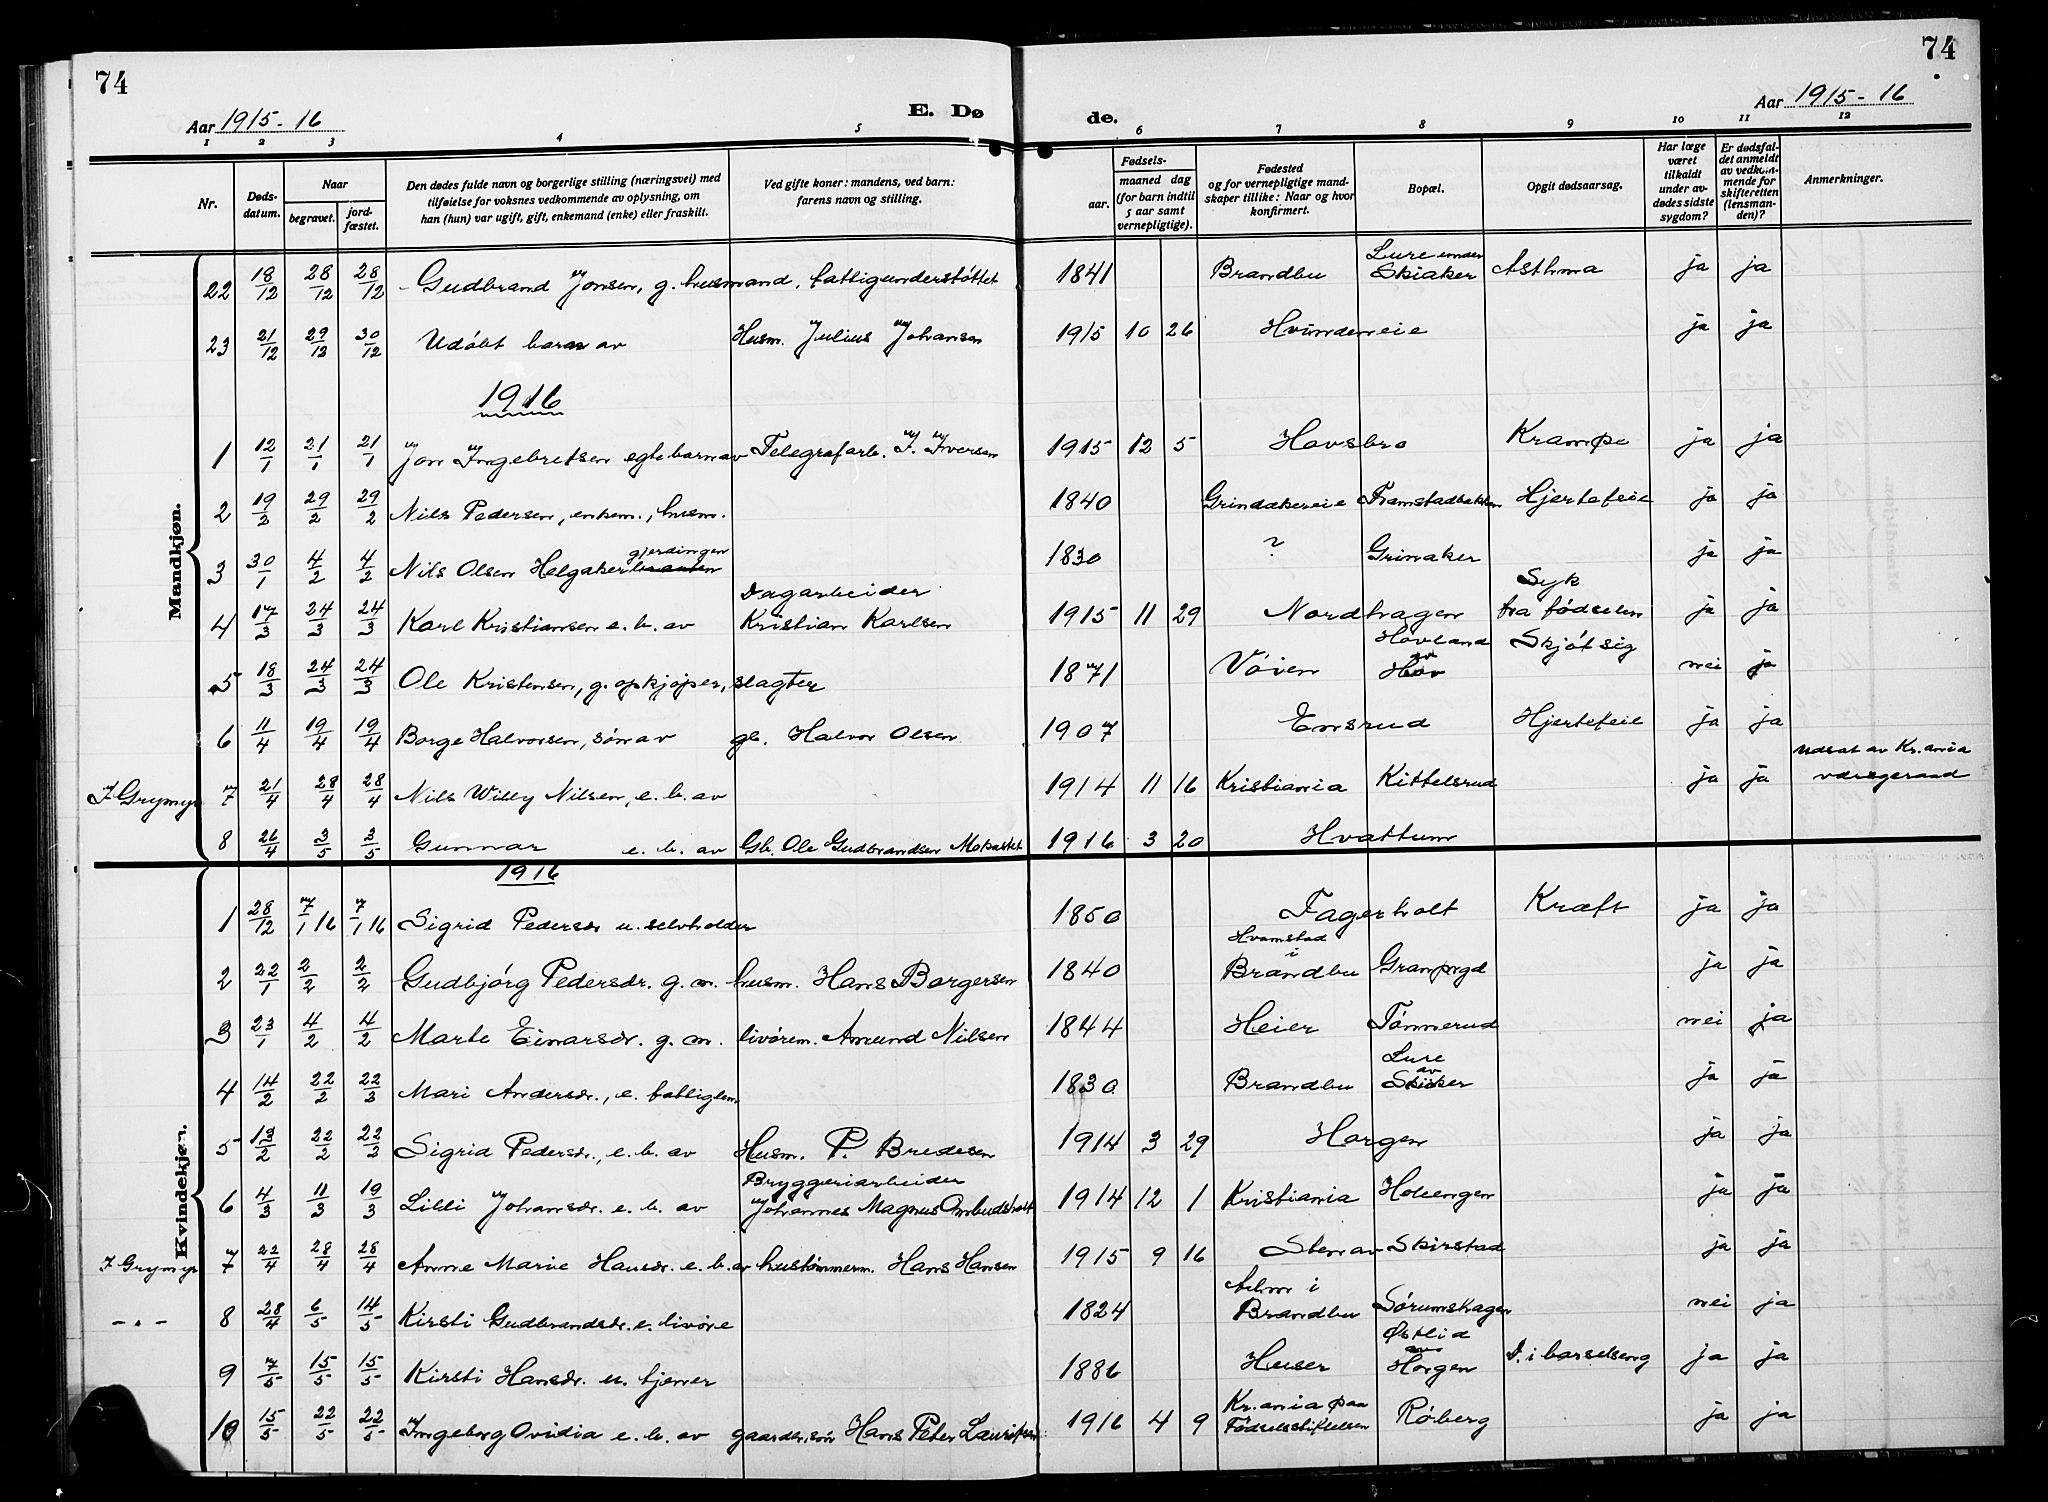 74
74
Aar 1915-16
E. Dø
de.
Aar 1915-16
1 2 3 4 5 6 7 8 9 10 11 12
Nr.
Døds-datum.
Naar
begravet.
jord-fæstet.
Den dødes fulde navn og borgerlige stilling (næringsvei) med
tilføielse for voksnes vedkommende av oplysning, om
han (hun) var ugift, gift, enkemand (enke) eller fraskilt.
Ved gifte koner: mandens, ved barn:
farens navn og stilling.
Fødsels-
aar.
maaned dag
(for barn indtil
5 aar samt
vernepligtige).
Fødested
og for vernepligtige mand-
skaper tillike: Naar og hvor
konfirmert.
Bopæl.
Opgit dødsaarsag.
Har læge
været
tilkaldt
under av-
dødes sidste
sygdom?
Er dødsfal-
det anmeldt
av vedkom-
mende for
skifteretten
(lensman-
den)?
Anmerkninger.
Mandkjøn.
22 18/12 28/12 28/12 Gudbrand Jonsen, g. husmand, fattigunderstøttet 1841 Brandbu Lure under Skiaker Asthma ja ja
23 21/12 29/12 30/12 Udøbt barn av Husm. Julius Johansen 1915 10 26 Hvindeneie ja ja
1916
1 12/1 21/1 21/1 Jon Ingebretsen egte barn av Telegrafarb. I. Iversen 1915 12 5 Hovsbro Krampe ja ja
2 19/2 29/2 29/2 Nils Pedersen, enkem., husm. 1840 Grindakereie Framstadbakken Hjertefeil ja ja
3 30/1 4/2 4/2 Nils Olsen Helgaker gjerdingen 1830 ? Grinaker ja ja
4 17/3 24/3 24/3 Karl Kristiansen e. b. av Dagarbeider Kristian Karlsen 1915 11 29 Nordhagen Syk fra fødselen ja ja
5 18/3 24/3 24/3 Ole Kristensen, g. opkjøper, slagter 1871 Vøien Hovland av Hov Skjøt sig nei ja
6 11/4 19/4 19/4 Borge Halvorsen, søn av gb. Halvor Olsen 1907 Ensrud Hjertefeil ja ja
I Grymyr 7 21/4 28/4 28/4 Nils Willy Nilsen, e. b. av 1914 11 16 Kristiania Kittelsrud ja ja Udsat av Kr.ania værgeraad
8 26/4 3/5 3/5 Gunnar e. b. av Gb. Ole Gudbrandsen 1916 3 20 Hvattum
Kvindekjøn.
1916
1 28/12 7/1 16 7/1 16 Sigrid Pedersdr u. selvholder 1850 Fagerholt Kræft ja ja
2 22/1 2/2 2/2 Gudbjørg Pedersdr. g. m. husm. Hans Borgersen 1840 Hvamstad i Brandbu ja ja
3 23/1 4/2 4/2 Marte Einarsdr. g. m. livørem. Amund Nilsen 1844 Heier Tømmerud nei ja
4 14/2 22/2 22/3 Mari Andersdr., e. fattiglem 1830 Brandbu Lure av Skiaker ja ja
5 19/2 22/2 22/3 Sigrid Pedersdr., e. b. av Husm. P. Bredesen 1914 3 29 Horgen ja ja
6 4/3 11/3 19/3 Lilli Johansdr. e. b. av Bryggeriarbeider Johannes Magnus 1914 12 1 Kristiania ja ja
I Grymyr 7 22/4 28/4 28/4 Anne Marie Hansdr. e. b. av hustømmerm. Hans Hansen 1915 9 16 Sten av Skirstad ja ja
- " - 8 28/4 6/5 14/5 Kirsti Gudbrandsdr. e. livøre 1824 i Brandbu Sørumshagen nei ja
9 7/5 15/5 15/5 Kirsti Hansdr. u. tjener 1886 Huser Østlid av Horgen D. i barselseng ja ja
10 15/5 22/5 22/5 Ingeborg Ovidia e. b. av gaardersøn Hans Peter 1916 4 9 Kr.ania paa Fødselsstiftelsen Røberg ja ja